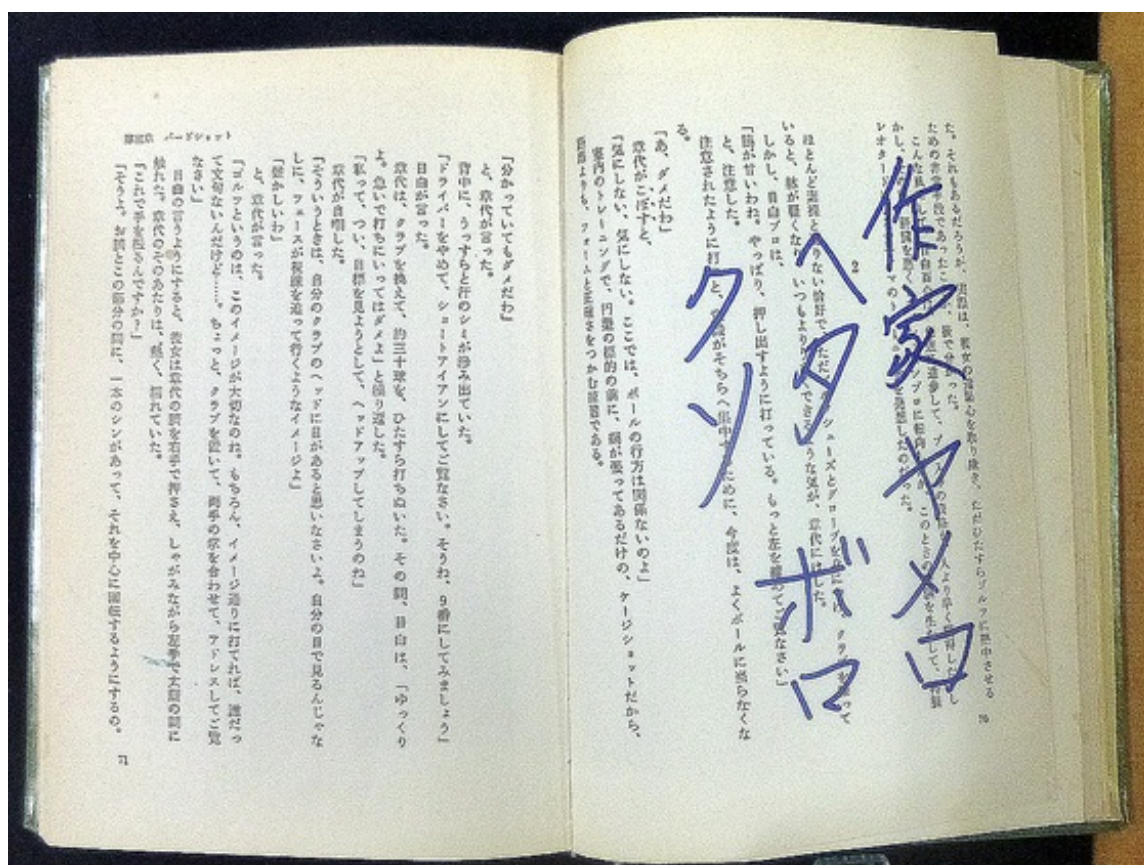 た。それもあるだろうが、実際は、彼女の羞恥心を取り除き、ただひたすらゴルフに熱中させる
ための非常手段であったこと
作家ヤメロ
ヘタボロ
クソ
2
いると、体が軽くなり、いつもより
しかし、目白プロは、
「脇が甘いわね。やっぱり、押し出すように打っている。もっと左を
と、注意した。
注意されたように打
ために、今度は、よくボールに当らなくな
る。
「あ、ダメだわ」
章代がこぼすと、
「気にしない、気にしない。ここでは、ボールの行方は関係ないのよ」
室内のトレーニングで、円型の標的の前に、網が張ってあるだけの、ケージショットだから、
距離よりも、フォームと正確さをつかむ練習である。
70
第三章 バードショット
「分かっていてもダメだわ」
と、章代が言った。
背中に、うっすらと汗のシミが滲み出ていた。
「ドライバーをやめて、ショートアイアンにしてご覧なさい。そうね、9番にしてみましょう」
目白が言った。
章代は、クラブを換えて、約三十球を、ひたすら打ちぬいた。その間、目白は、「ゆっくり
よ。急いで打ちにいってはダメよ」と繰り返した。
「私って、つい、目標を見ようとして、ヘッドアップしてしまうのね」
章代が自嘲した。
「そういうときは、自分のクラブのヘッドに目があると思いなさいよ。自分の目で見るんじゃな
しに、フェースが視線を追って行くようなイメージよ」
「難かしいわ」
と、章代が言った。
「ゴルフというのは、このイメージが大切なのね。もちろん、イメージ通りに打てれば、誰だっ
て文句ないんだけど……。ちょっと、クラブを置いて、両手の掌を合わせて、アドレスしてご覧
なさい」
目白の言うようにすると、彼女は章代の頭を右手で押さえ、しゃがみながら左手で太腿の間に
触れた。章代のそのあたりは、熱く、濡れていた。
「これで手を振るんですか？」
「そうよ。お頭とこの部分の間に、一本のシンがあって、それを中心に回転するようにするの。
71